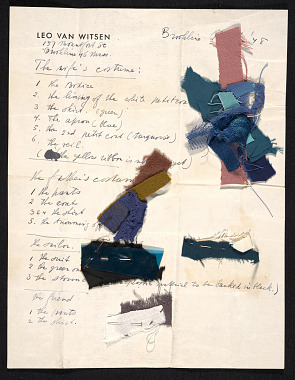 LEO VAN WITSEN
Brookline '48
Brookline 46 Mass.
The wife's costume:
1 the bodice
2. the lining of the white petticoat
3. the skirt (green)
4. The apron (blue)
5. the 2nd petticoat (turquoise)
6. the veil.
the yellow ribbon is
costume
1 the pants
2 the coat
3 & 4 the shirt
5. the
the sailor.
1 the suit
2 the green
3 the to be backed in black.)
the friend
1 the pants
2 the shirt.